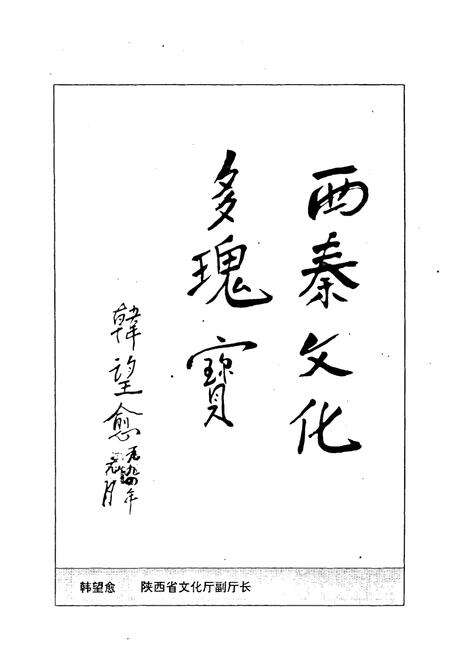 西秦文化
多瑰寶
韩望愈
一九九四年
韩望愈 陕西省文化厅副厅长